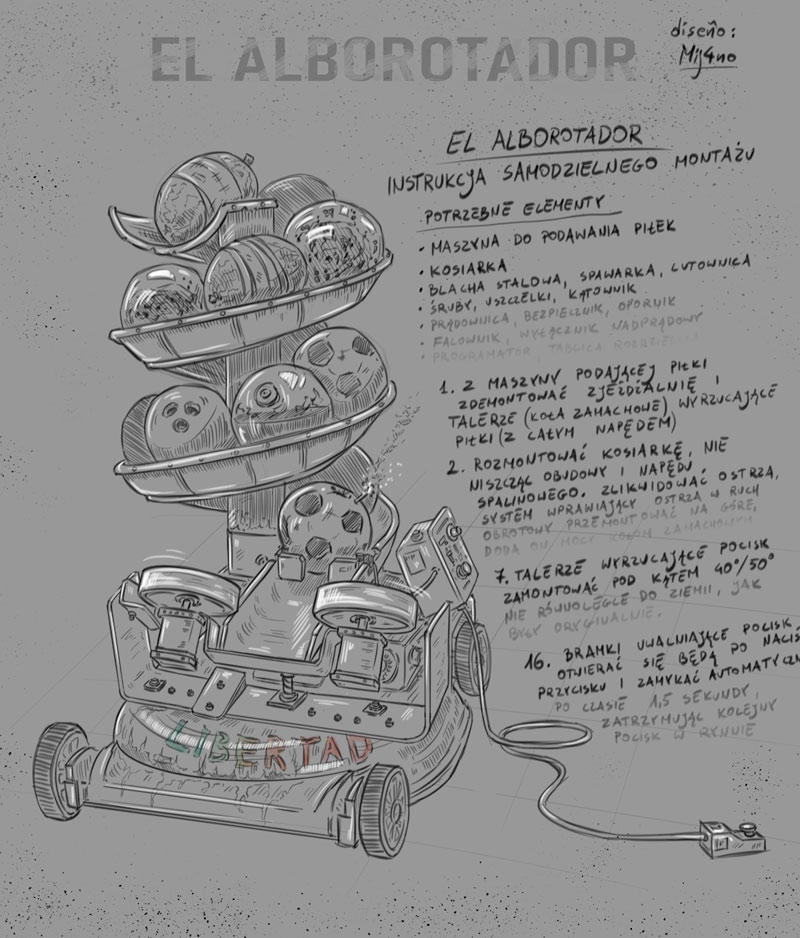 EL ALBOROTADOR
diseño:
Mij4no
EL ALBOROTADOR
INSTRUKCJA SAMODZIELNEGO MONTAŻU
POTRZEBNE ELEMENTY
• MASZYNA DO PODAWANIA PIŁEK
• KOSIARKA
• BLACHA STALOWA, SPAWARKA, LUTOWNICA
• ŚRUBY, USZCZELKI, KĄTOWNIK
• PRĄDOWNICA, BEZPIECZNIK, OPORNIK
• FALOWNIK, WYŁĄCZNIK NADPRĄDOWY
• PROGRAMATOR, TABLICA ROZDZIELCZA
1. Z MASZYNY PODAJĄCEJ PIŁKI
ZDEMONTOWAĆ ZJEŻDŻALNIĘ I
TALERZE (KOŁA ZAMACHOWE) WYRZUCAJĄCE
PIŁKI (Z CAŁYM NAPĘDEM)
2. ROZMONTOWAĆ KOSIARKĘ, NIE
NISZCZĄC OBUDOWY I NAPĘDU
SPALINOWEGO. ZLIKWIDOWAĆ OSTRZA,
SYSTEM WPRAWIAJĄCY OSTRZA W RUCH
OBROTOWY PRZEMONTOWAĆ NA GÓRĘ,
DODA ON MOCY KOŁOM ZAMACHOWYM
7. TALERZE WYRZUCAJĄCE POCISK
ZAMONTOWAĆ POD KĄTEM 40°/50°
NIE RÓWNOLEGLE DO ZIEMII, JAK
BYŁY ORYGINALNIE.
16. BRAMKI UWALNIAJĄCE POCISK
OTWIERAĆ SIĘ BĘDĄ PO NACIŚ
PRZYCISKU I ZAMYKAĆ AUTOMATYCZN
PO CZASIE 1,5 SEKUNDY,
ZATRZYMUJĄC KOLEJNY
POCISK W RYNNIE
LIBERTAD